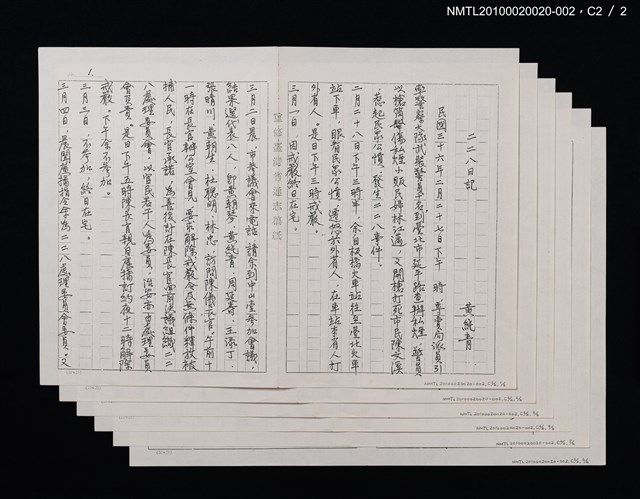 NMTL20100020020-002，C2 / 2
二二八日記
黃純青
民國三十六年二月二十七日下午 時 專賣局派員引
率警察大隊武裝警員 名到臺北市延平路查辦私煙，警員
以槍筒擊傷私煙小販民婦林江邁，又開槍打死市民陳文溪
，惹起民眾公憤，發生二二八事件。
二月二十八日下午三時半，余自板橋火車站往至臺北火車
站下車，眼看民眾公憤，遷怒於外省人，在車站末有人打
外省人。是日下午三時戒嚴。
三月一日，因戒嚴終日在宅。
三月二日晨，市參議會來電話，請余到中山堂參加會議，
結果選代表八人，即黃朝琴，黃純青，周延壽，王添丁，
張晴川，黃朝生，杜聰明，林忠，訪問陳儀長官。午前十
一時在長官辦公室會見，要求解除戒嚴令及無條件釋放被
捕人民，長官承諾，為善後計在陳長官面前決議組織二二
八處理委員會，以官民若干人為委員，治安亦由處理委員
會負責，是日下午五時陳長官親自廣播訂約夜十二時解除
戒嚴。下午余不參加。
三月三日，不參加，終日在宅。
三月四日，晨聞廣播指余為二二八處理委員會委員。又
1.
NMTL20100020020-002_C2